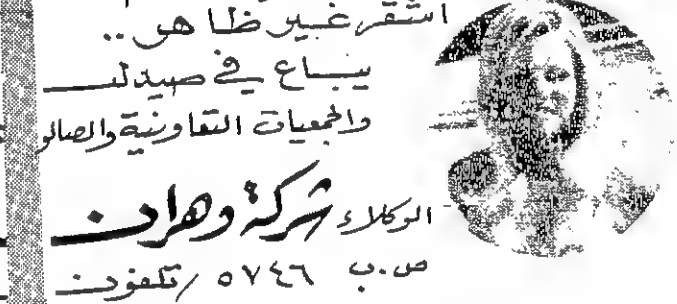 أشقر غير ظاهر..
يباع في
والجمعيات التعاونية
الوكلاء شركة وهران
ص.ب ٥٧٤٦ / تلفون